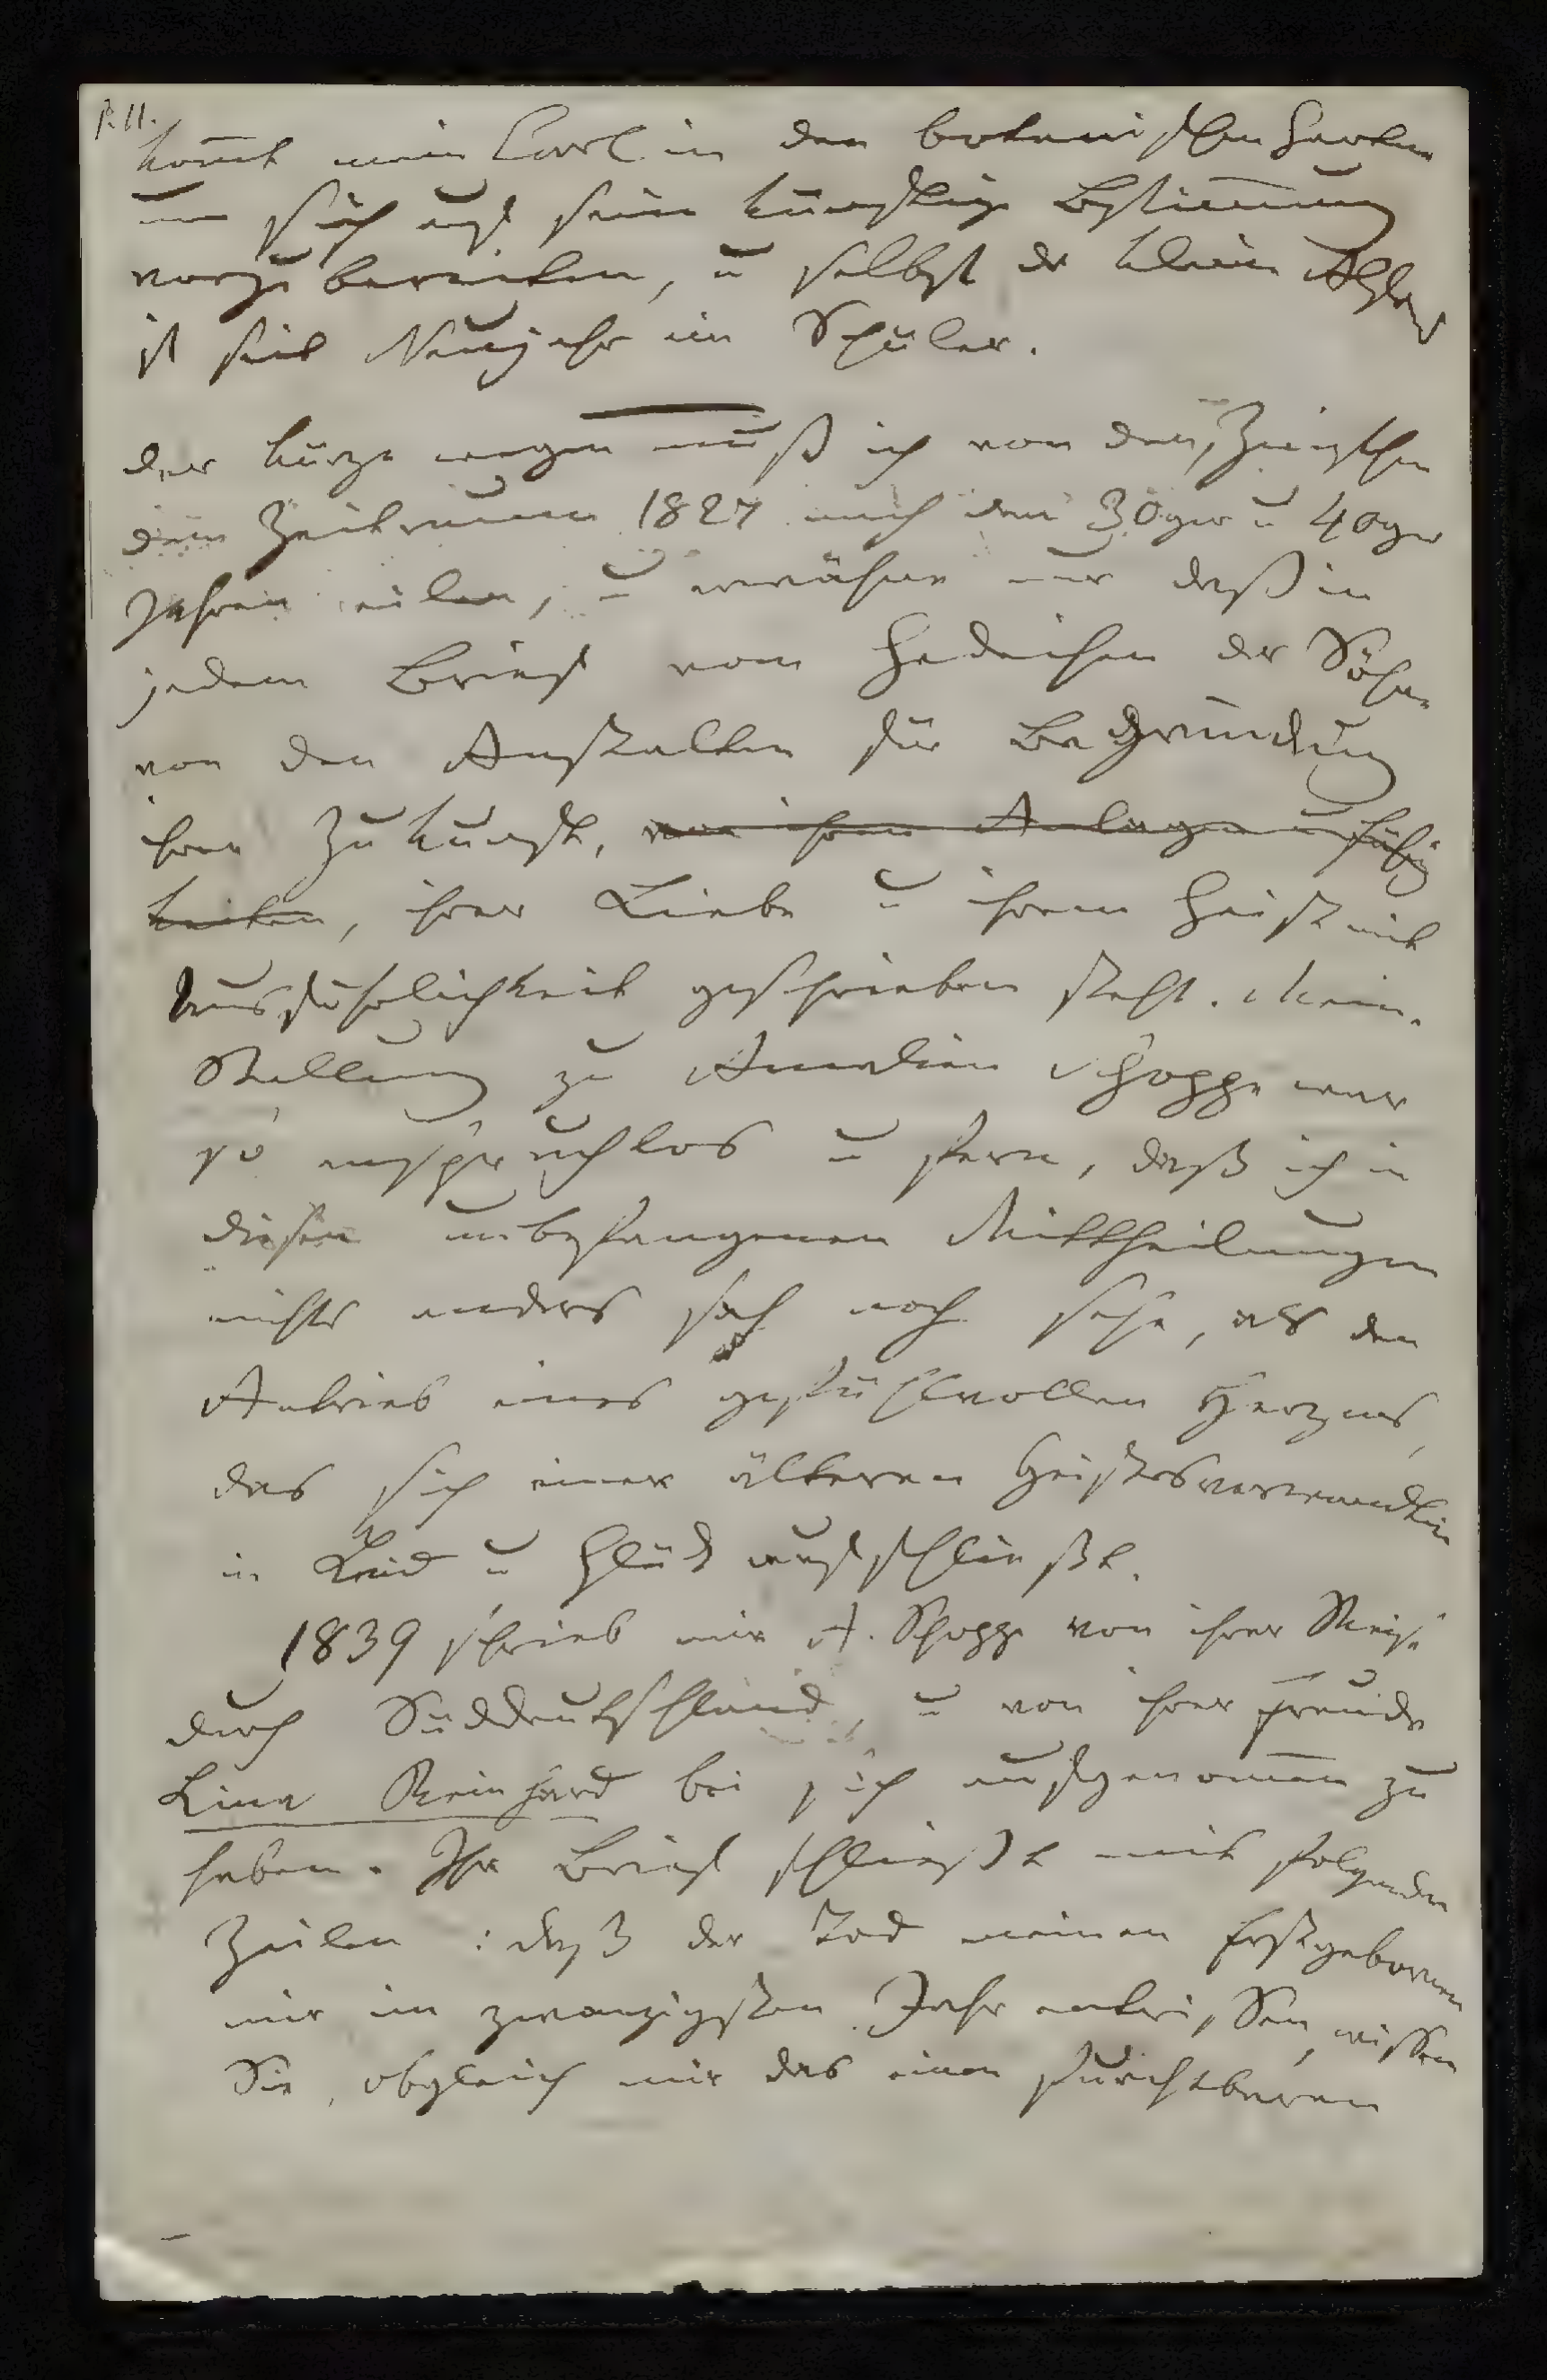 P. 11.
kom̅t mein Carl in den botanischen Garten
um sich auf seine künftige Bestim̅ung
vorzubereiten, u selbst der kleine Alphons
ist seit Neujahr ein Schüler.
der Kürze wegen muß ich von den, Zwischen
dem Zeitraum 1827 nach den 30ger u 40ger
Jahren eilen, u erwähne nur daß in
jedem Brief vom Gedeihen der Söhne
von den Anstalten für Begründung
ihrer Zukunft, von ihren Anlagen u Fähig
keiten, ihrer Liebe u ihrem Geist mit
Ausführlichkeit geschrieben steht. Meine
Stellung zu Amalien Schoppe war
so anspruchlos u fern, daß ich in
diesen unbefangenen Mittheilungen
nichts anders sah noch sehe, als den
Antrieb eines gefühlvollen Herzens,
das sich einer älteren Geistesverwandtin
in Leid u Glück aufschließt.
1839 schrieb mir A. Schoppe von ihrer Reise
durch Süddeutschland, u von ihrer Freude
Lina Reinhard bei sich aufgenom̅en zu
haben. Ihr Brief schließt mit folgenden
Zeilen : daß der Tod meinen Erstgebornen
mir im zwanzigsten Jahr entrissen, wissen
Sie, obgleich mir das einen furchtbaren